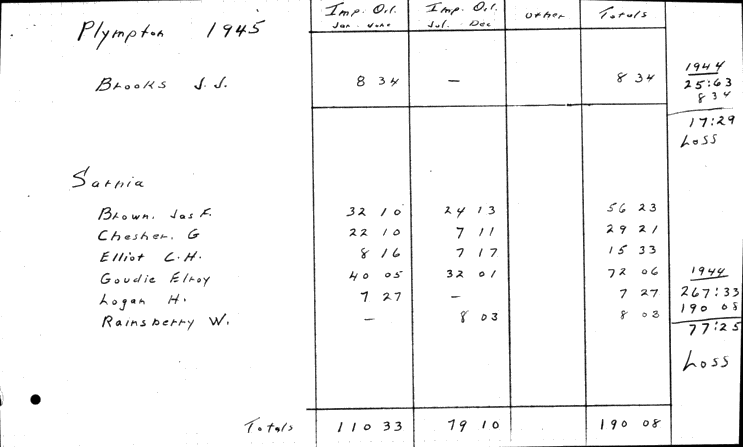 Plympton 1945 Imp. Oil Jan June Imp. Oil Jul. Dec Other Totals
Brooks J. J. 8 34 — 8 34
1944
25:63
8 34
17:29
Loss
Sarnia
Brown. Jas F. 32 10 24 13 56 23
Chesher. G 22 10 7 11 29 21
Elliot C. H. 8 16 7 17 15 33
Goudie Elroy 40 05 32 01 72 06
Logan H. 7 27 — 7 27
Rainsberry W. — 8 03 8 03
1944
267:33
190 08
77:25
Loss
Totals 110 33 79 10 190 08